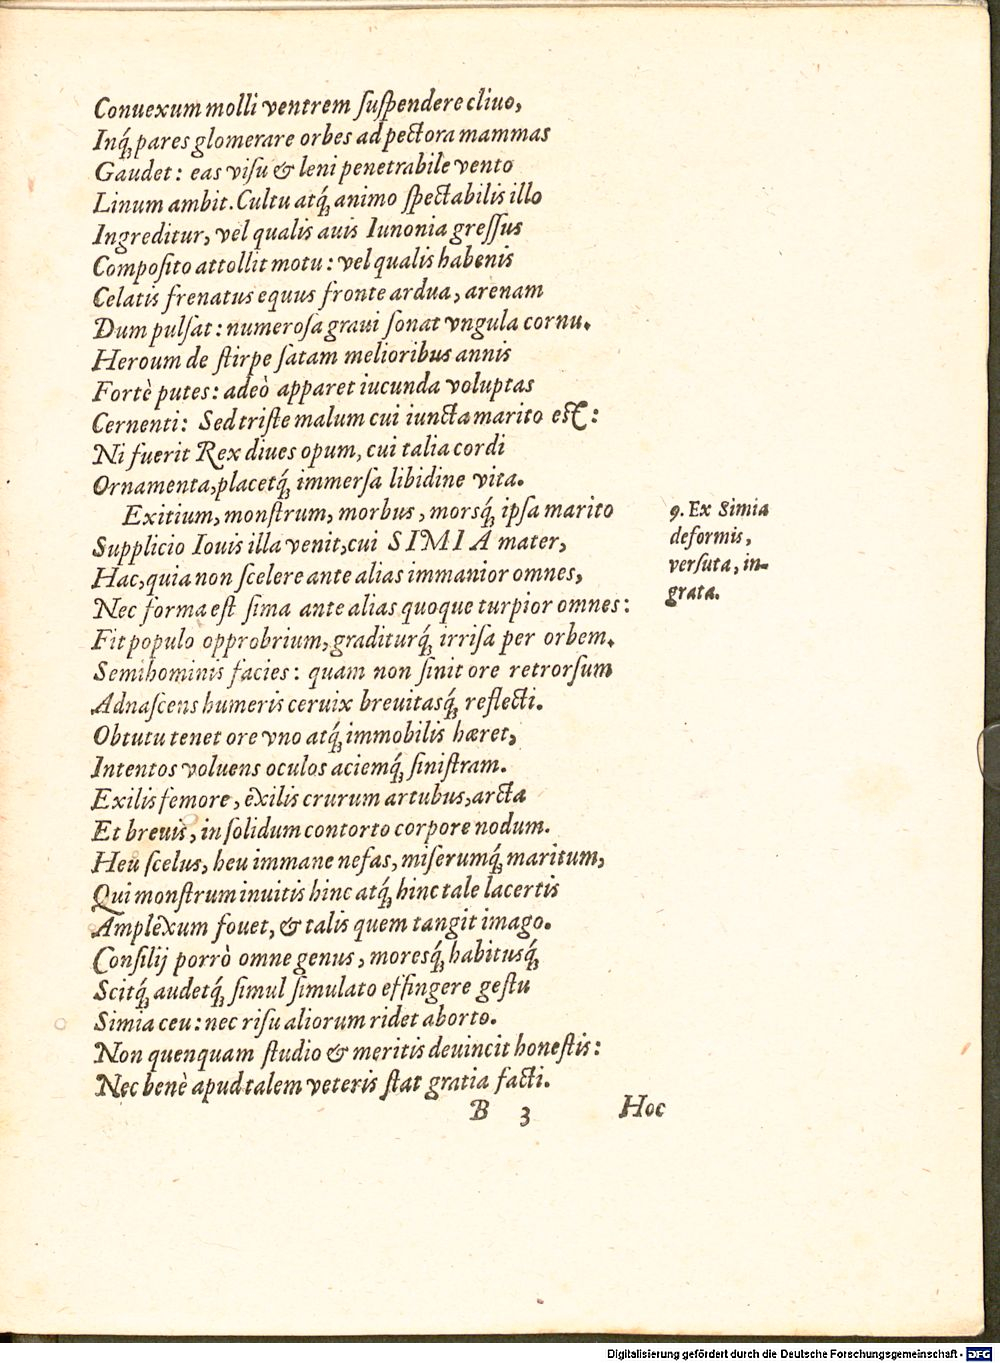 Conuexum molli ventrem ſuſpendere cliuo,
Inq́; pares glomerare orbes ad pectora mammas
Gaudet: eas viſu & leni penetrabile vento
Linum ambit. Cultu atq́; animo ſpectabilis illo
Ingreditur, vel qualis auis Iunonia greſſus
Compoſito attollit motu: vel qualis habenis
Celatis frenatus equus fronte ardua, arenam
Dum pulſat: numeroſa graui ſonat vngula cornu.
Heroum de ſtirpe ſatam melioribus annis
Fortè putes: adeò apparet iucunda voluptas
Cernenti: Sed triſte malum cui iuncta marito eſt:
Ni fuerit Rex diues opum, cui talia cordi
Ornamenta, placetq́; immerſa libidine vita.
Exitium, monſtrum, morbus, morsq́; ipſa marito
Supplicio Iouis illa venit, cui SIMIA mater,
Hac, quia non ſcelere ante alias immanior omnes,
Nec forma eſt ſima ante alias quoque turpior omnes:
Fit populo opprobrium, graditurq́; irriſa per orbem.
Semihominis facies: quam non ſinit ore retrorſum
Adnaſcens humeris ceruix breuitasq́; reflecti.
Obtutu tenet ore vno atq́; immobilis hæret,
Intentos voluens oculos aciemq́; ſiniſtram.
Exilis femore, exilis crurum artubus, arcta
Et breuis, in ſolidum contorto corpore nodum.
Heu ſcelus, heu immane nefas, miſerumq́; maritum,
Qui monſtrum inuitis hinc atq́; hinc tale lacertis
Amplexum fouet, & talis quem tangit imago.
Conſilij porrò omne genus, moresq́; habitusq́;
Scitq́; audetq́; ſimul ſimulato effingere geſtu
Simia ceu: nec riſu aliorum ridet aborto.
Non quenquam ſtudio & meritis deuincit honeſtis:
Nec benè apud talem veteris ſtat gratia facti.
B 3 Hoc
9. Ex Simia
deformis,
verſuta, in-
grata.
Digitalisierung gefördert durch die Deutsche Forschungsgemeinschaft - DFG